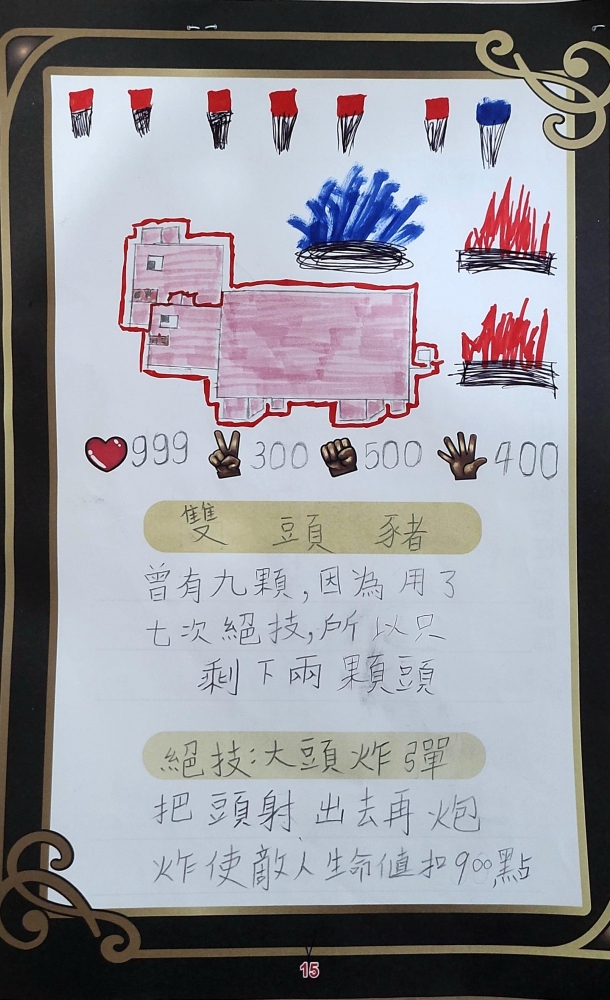 999 300 500 400
雙 頭 豬
曾有九顆,因為用了
七次絕技,所以只
剩下兩顆頭
絕技:大頭炸彈
把頭射出去再炮
炸使敵人生命值扣900點
15